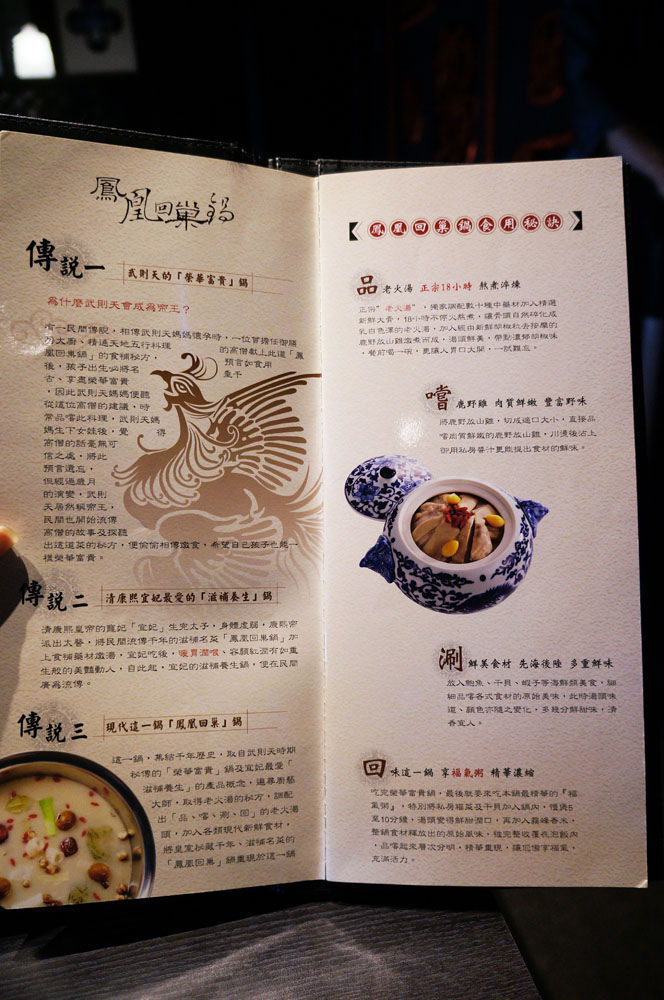 鳳凰回巢鍋
傳說一 武則天的「榮華富貴」鍋
為什麼武則天會成為帝王？
有一民間傳說，相傳武則天媽媽懷孕時，一位曾擔任御膳
房大廚、精通天地五行料理
的高僧獻上此道「鳳
凰回巢鍋」的食補秘方，
預言如食用
後，孩子出生必將名
垂千
古、享盡榮華富貴
，因此武則天媽媽便聽
從這位高僧的建議，時
常品嚐此料理，武則天媽
媽生下女娃後，覺得
高僧的話毫無可
信之處，將此
預言遺忘，
但經過歲月
的演變，武則
天居然稱帝王，
民間也開始流傳
高僧的故事及探聽
出這道菜的秘方，便偷偷相傳燉食，希望自己孩子也能一
樣榮華富貴。
傳說二 清康熙宜妃最愛的「滋補養生」鍋
清康熙皇帝的寵妃「宜妃」生完太子，身體虛弱，康熙帝
派出太醫，將民間流傳千年的滋補名菜「鳳凰回巢鍋」加
上食補藥材燉湯，宜妃吃後，暖胃潤喉、容顏紅潤有如重
生般的美豔動人，自此起，宜妃的滋補養生鍋，便在民間
廣為流傳。
傳說三 現代這一鍋「鳳凰回巢」鍋
這一鍋，集結千年歷史，取自武則天時期
秘傳的「榮華富貴」鍋及宜妃最愛「
滋補養生」的產品概念，遍尋廚藝
大師，取得老火湯的秘方，調配
出「品、嚐、涮、回」的老火湯
頭，加入各類現代新鮮食材，
將皇室秘藏千年、滋補名菜的
「鳳凰回巢」鍋重現於這一鍋
鳳凰回巢鍋食用秘訣
品 老火湯 正宗18小時 熬煮淬煉
正宗"老火湯"，獨家調配數十種中藥材加入精選
新鮮大骨，18小時不停火熬煮，讓骨頭自然碎化成
乳白色澤的老火湯，加入經由新鮮胡椒粒去按摩的
鹿野放山雞燉煮而成，湯頭鮮美，帶點濃郁胡椒味
，餐前喝一碗，更讓人胃口大開，一試難忘。
嚐 鹿野雞 肉質鮮嫩 豐富野味
將鹿野放山雞，切成適口大小，直接品
嚐肉質鮮嫩的鹿野放山雞，川燙後沾上
御用私房醬汁更能提出食材的鮮味。
涮 鮮美食材 先海後陸 多重鮮味
放入鮑魚、干貝、蝦子等海鮮類美食，細
細品嚐各式食材的原始美味，此時湯頭味
道、顏色亦隨之變化，多幾分鮮甜味，清
香宜人。
回 味這一鍋 享福氣粥 精華濃縮
吃完榮華富貴鍋，最後就要來吃本鍋最精華的『福
氣粥』，特別將私房福菜及干貝加入鍋內，慢煲5
至10分鐘，湯頭變得鮮甜潤口，再加入霧峰香米，
整鍋食材釋放出的原始風味，確完整收覆在泡飯內
，品嚐起來層次分明，精華重現，讓您備享福氣，
充滿活力。